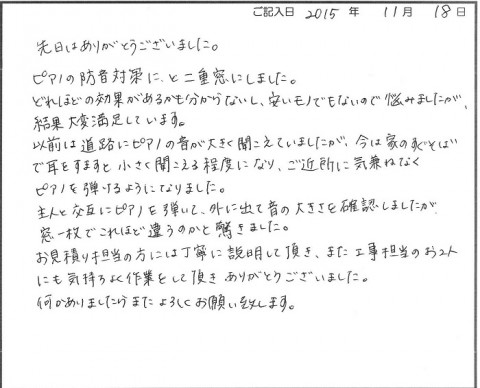 ご記入日 2015 年 11 月 18 日
先日はありがとうございました。
ピアノの防音対策に、と二重窓にしました。
どれほどの効果があるかも分からないし、安いモノでもないので悩みましたが、
結果大変満足しています。
以前は道路にピアノの音が大きく聞こえていましたが、今は家のすぐそば
で耳をすますと小さく聞こえる程度になり、ご近所に気兼ねなく
ピアノを弾けるようになりました。
主人と交互にピアノを弾いて、外に出て音の大きさを確認しましたが
窓一枚でこれほど違うのかと驚きました。
お見積り担当の方には丁寧に説明して頂き、また工事担当のお2人
にも気持ちよく作業をして頂きありがとうございました。
何かありましたらまたよろしくお願い致します。